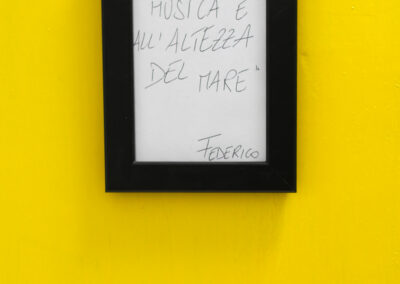 MUSICA È
ALL'ALTEZZA
DEL MARE"
FEDERICO